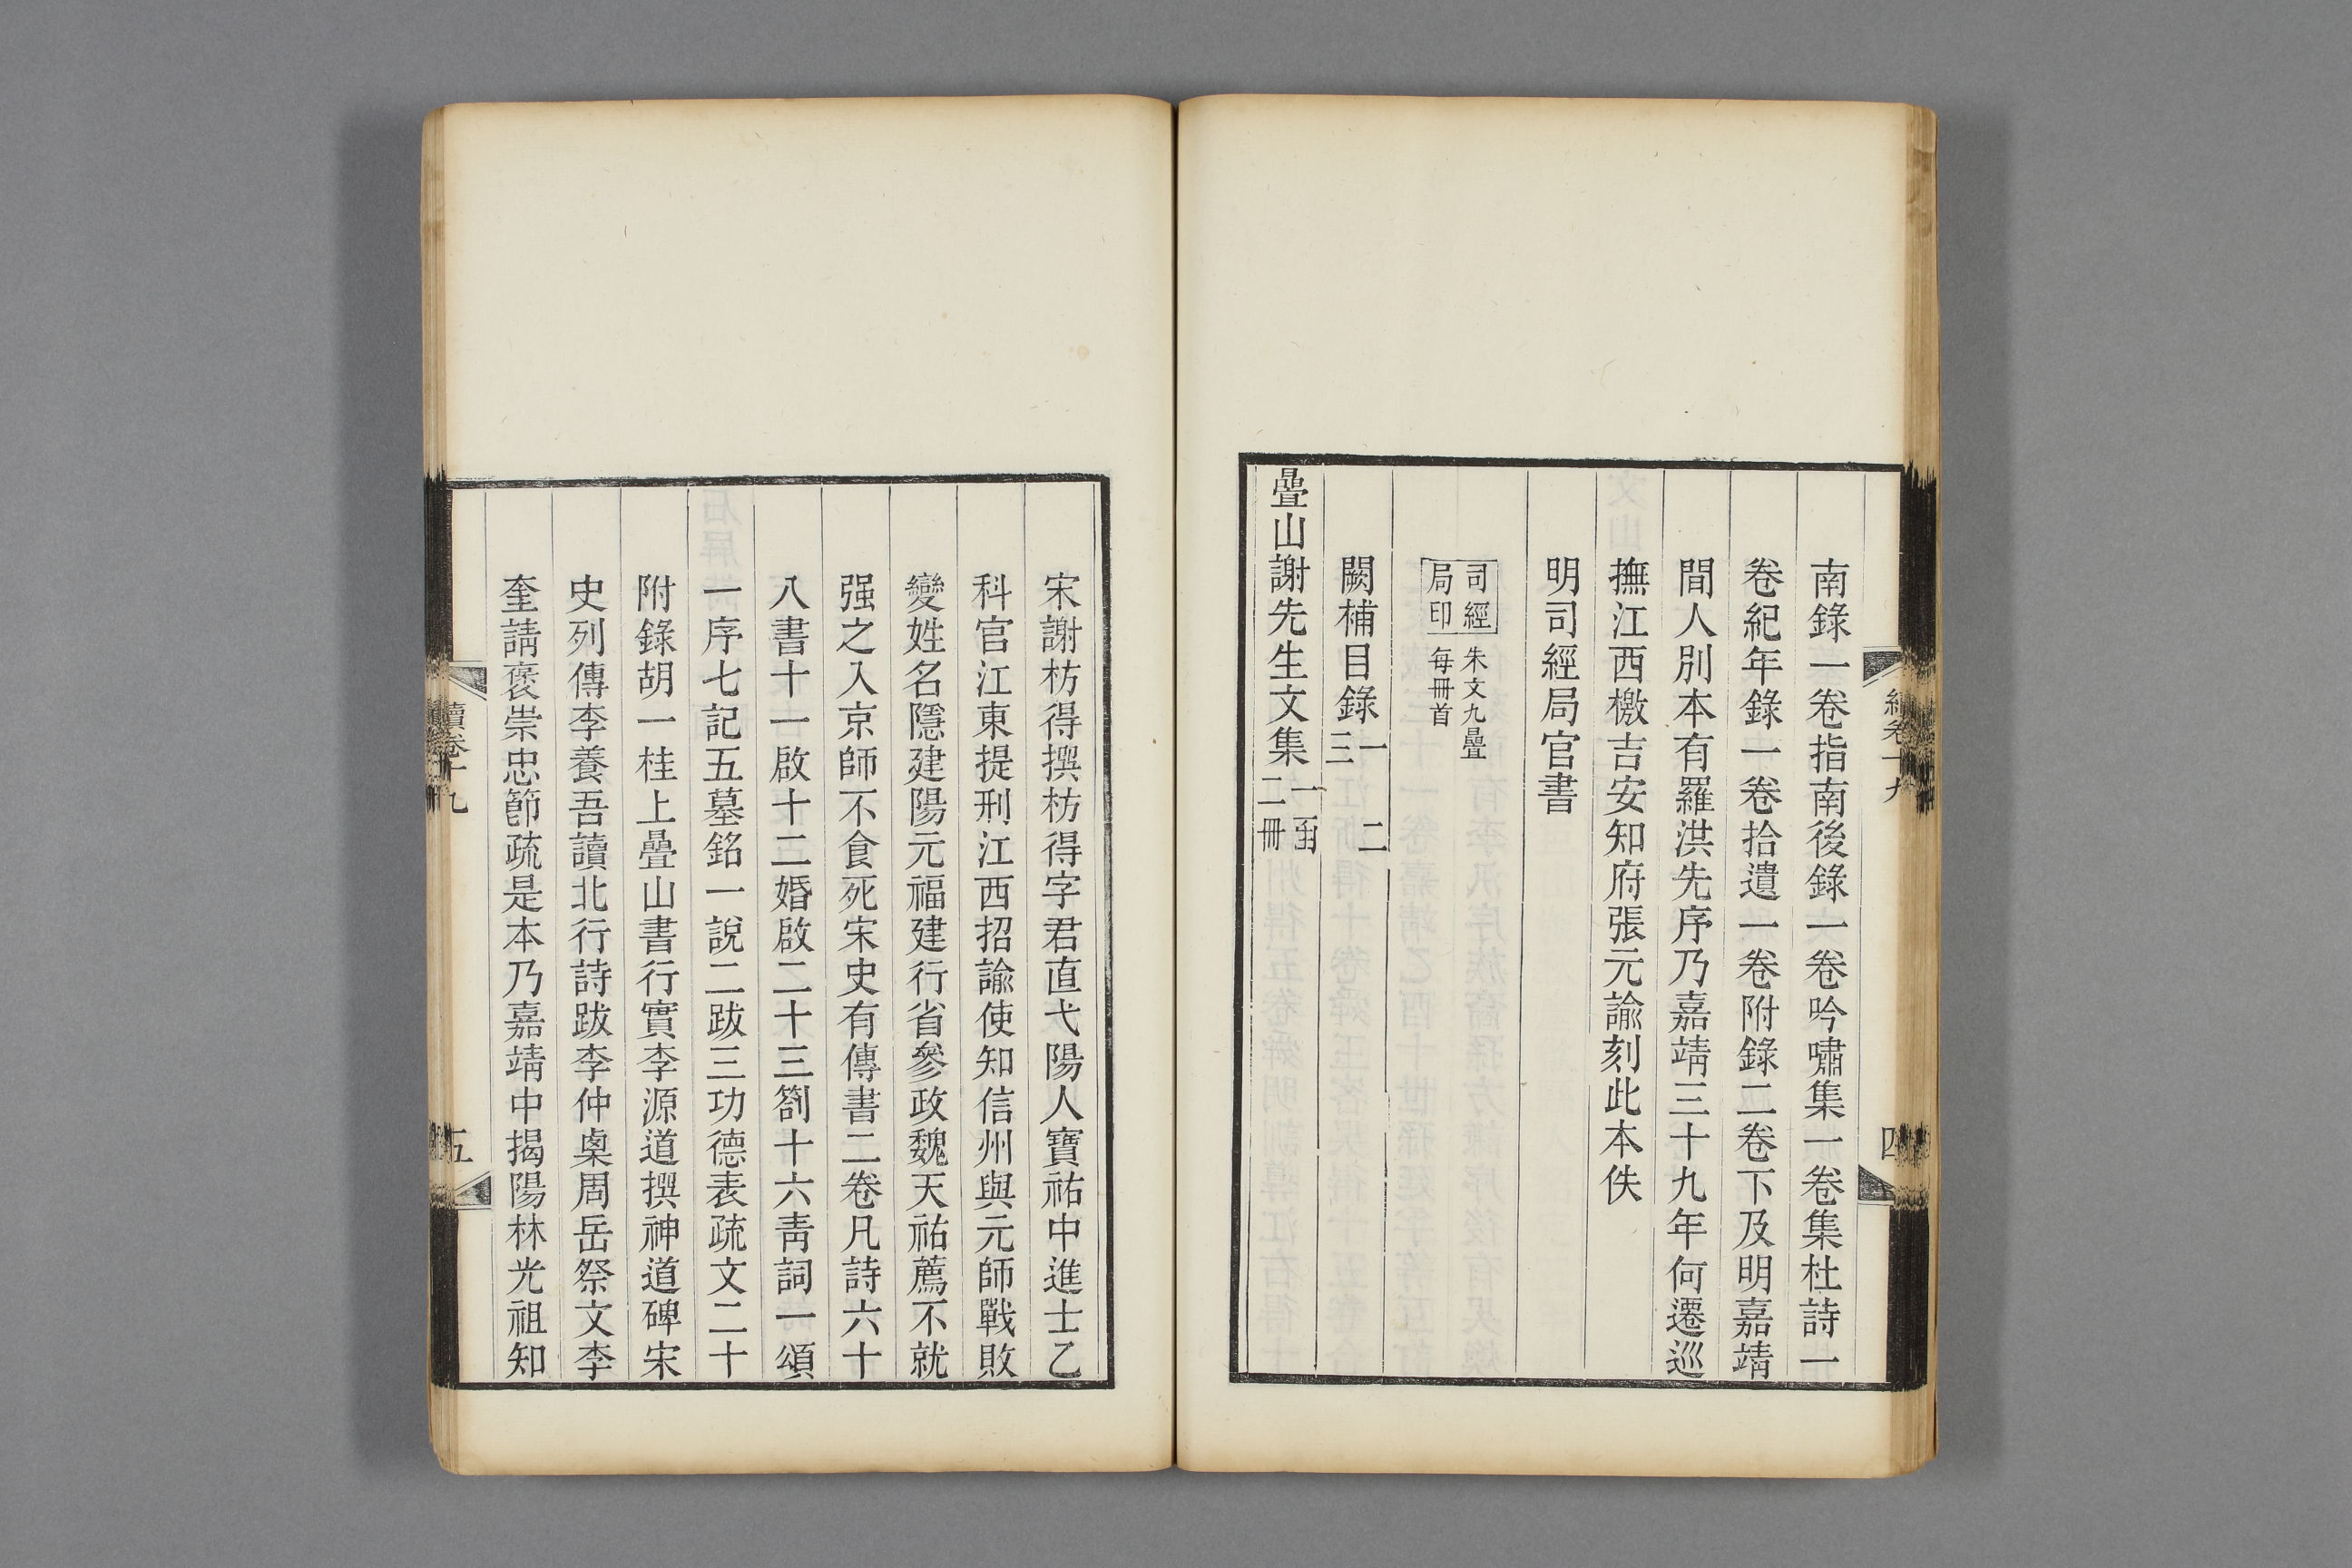 南錄一卷指南後錄一卷吟嘯集一卷集杜詩一
卷紀年錄一卷拾遺一卷附錄二卷下及明嘉靖
間人別本有羅洪先序乃嘉靖三十九年何遷巡
撫江西檄吉安知府張元諭刻此本佚
明司經局官書
司經
局印
朱文九疊
每冊首
闕補目錄一 二
三
疊山謝先生文集一函
二冊
卷十九
四
宋謝枋得撰枋得字君直弋陽人寶祐中進士乙
科官江東提刑江西招諭使知信州與元師戰敗
變姓名隱建陽元福建行省參政魏天祐薦不就
强之入京師不食死宋史有傳書二卷凡詩六十
八書十一啟十二婚啟二十三劄十六青詞一頌
一序七記五墓銘一說二跋三功德表疏文二十
附錄胡一桂上疊山書行實李源道撰神道碑宋
史列傳李養吾讀北行詩跋李仲㮚周岳祭文李
奎請褒崇忠節疏是本乃嘉靖中揭陽林光祖知
續卷十九
五